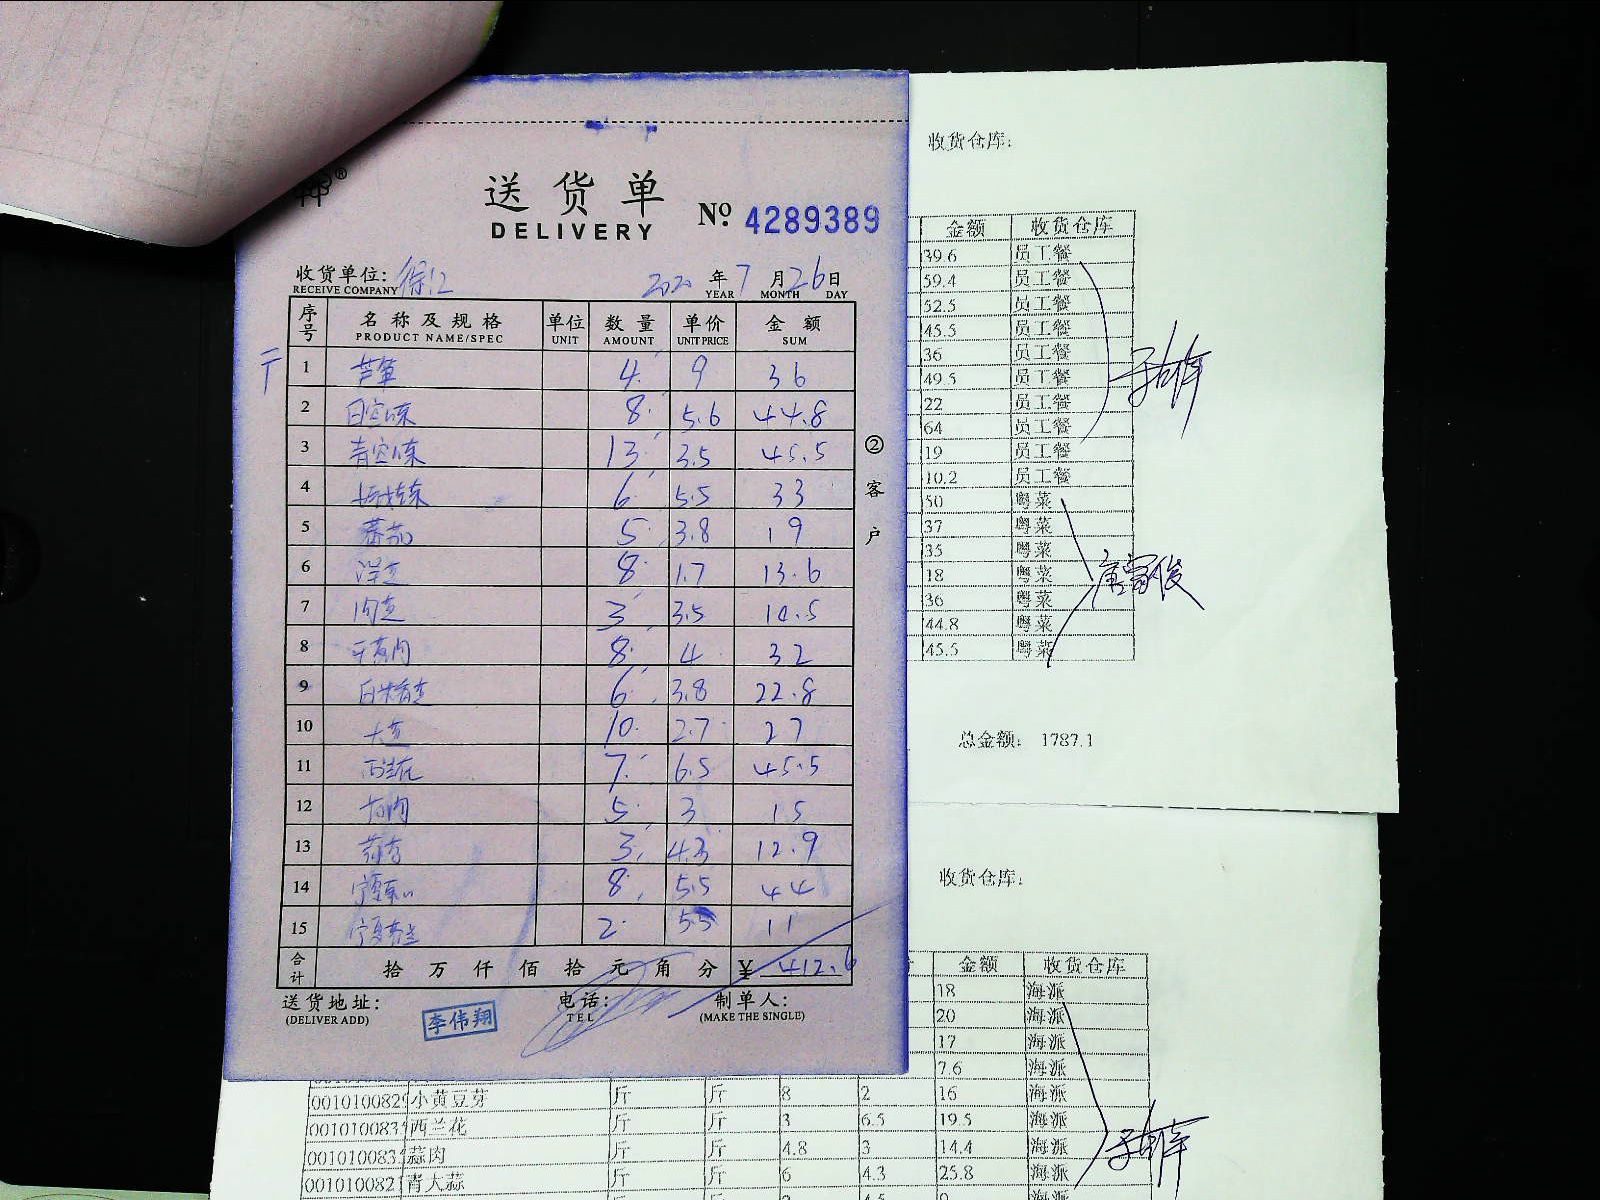 送货单
DELIVERY
№ 4289389
收货单位: 徐汇 2020 年 7 月 26 日
RECEIVE COMPANY YEAR MONTH DAY
序号 名称及规格 单位 数量 单价 金额
PRODUCT NAME/SPEC UNIT AMOUNT UNIT PRICE SUM
1 芦笋 4 9 36
2 8 5.6 44.8
3 13 3.5 45.5
4 6 5.5 33
5 番茄 5 3.8 19
6 8 1.7 13.6
7 3 3.5 10.5
8 8 4 32
9 6 3.8 22.8
10 10 2.7 27
11 西兰花 7 6.5 45.5
12 5 3 15
13 3 4.3 12.9
14 8 5.5 44
15 2 5.5 11
合计 拾 万 仟 佰 拾 元 角 分 ¥ 412.6
送货地址: 电话: 制单人:
(DELIVER ADD) TEL (MAKE THE SINGLE)
李伟翔
② 客户
收货仓库:
金额 收货仓库
39.6 员工餐
59.4 员工餐
52.5 员工餐
45.5 员工餐
36 员工餐
49.5 员工餐
22 员工餐
64 员工餐
19 员工餐
10.2 员工餐
50 粤菜
37 粤菜
35 粤菜
18 粤菜
36 粤菜
44.8 粤菜
45.5 粤菜
总金额: 1787.1
收货仓库:
金额 收货仓库
18 海派
20 海派
17 海派
7.6 海派
001010082 小黄豆芽 斤 斤 8 2 16 海派
001010083 西兰花 斤 斤 3 6.5 19.5 海派
001010083 蒜肉 斤 斤 4.8 3 14.4 海派
001010082 青大蒜 斤 斤 6 4.3 25.8 海派